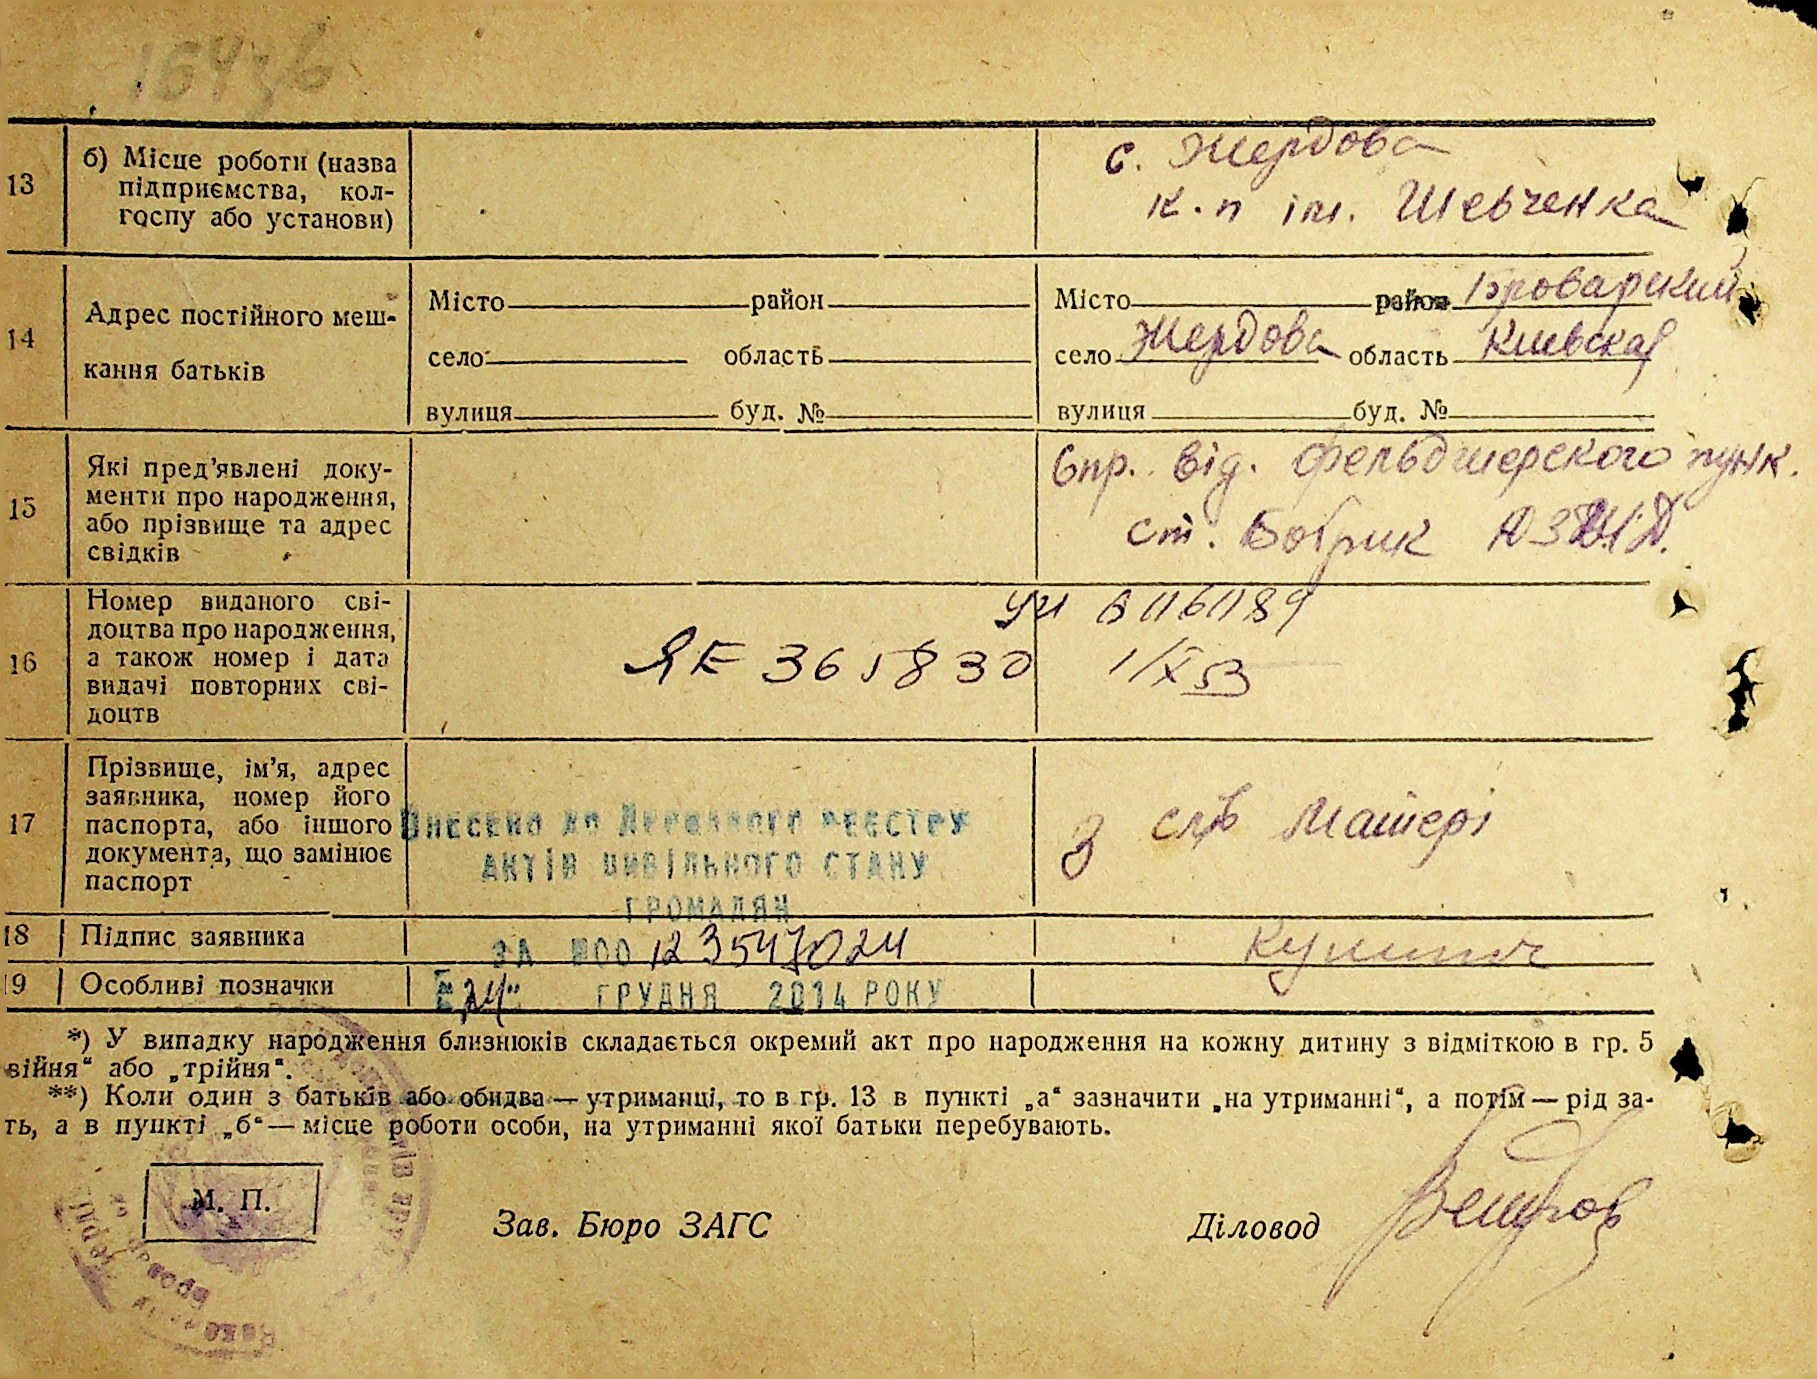 13
б) Місце роботи (назва
підприємства, кол-
госпу або установи)
с. Жердова
к.п ім. Шевченка
14
Адрес постійного меш-
кання батьків
Місто район
село область
вулиця буд. №
Місто район Броварский
село Жердова область Киевская
вулиця буд. №
15
Які пред'явлені доку-
менти про народження,
або прізвище та адрес
свідків
Спр. від. фельдшерского пунк.
ст. Бобрик
16
Номер виданого сві-
доцтва про народження,
а також номер і дата
видачі повторних сві-
доцтв
ЯЕ 365830
1/X 53
17
Прізвище, ім'я, адрес
заявника, номер його
паспорта, або іншого
документа, що замінює
паспорт
Внесено до Державного реєстру
актів цивільного стану
громадян
за №00 123547024
"24" грудня 2014 року
З слів матері
18
Підпис заявника
19
Особливі позначки
*) У випадку народження близнюків складається окремий акт про народження на кожну дитину з відміткою в гр. 5
війня“ або „трійня“.
**) Коли один з батьків або обидва — утриманці, то в гр. 13 в пункті „а“ зазначити „на утриманні“, а потім — рід за-
ть, а в пункті „б“ — місце роботи особи, на утриманні якої батьки перебувають.
М. П.
Зав. Бюро ЗАГС
Діловод